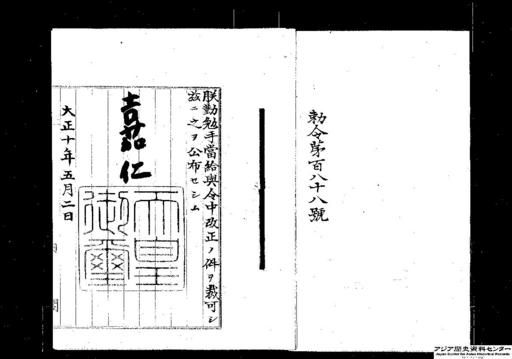 勅令第百八十八號
朕勤勉手當給與令中改正ノ件ヲ裁可シ
茲ニ之ヲ公布セシム
嘉仁
天皇
御璽
大正十年五月二日
アジア歴史資料センター
Japan Center for Asian Historical Records